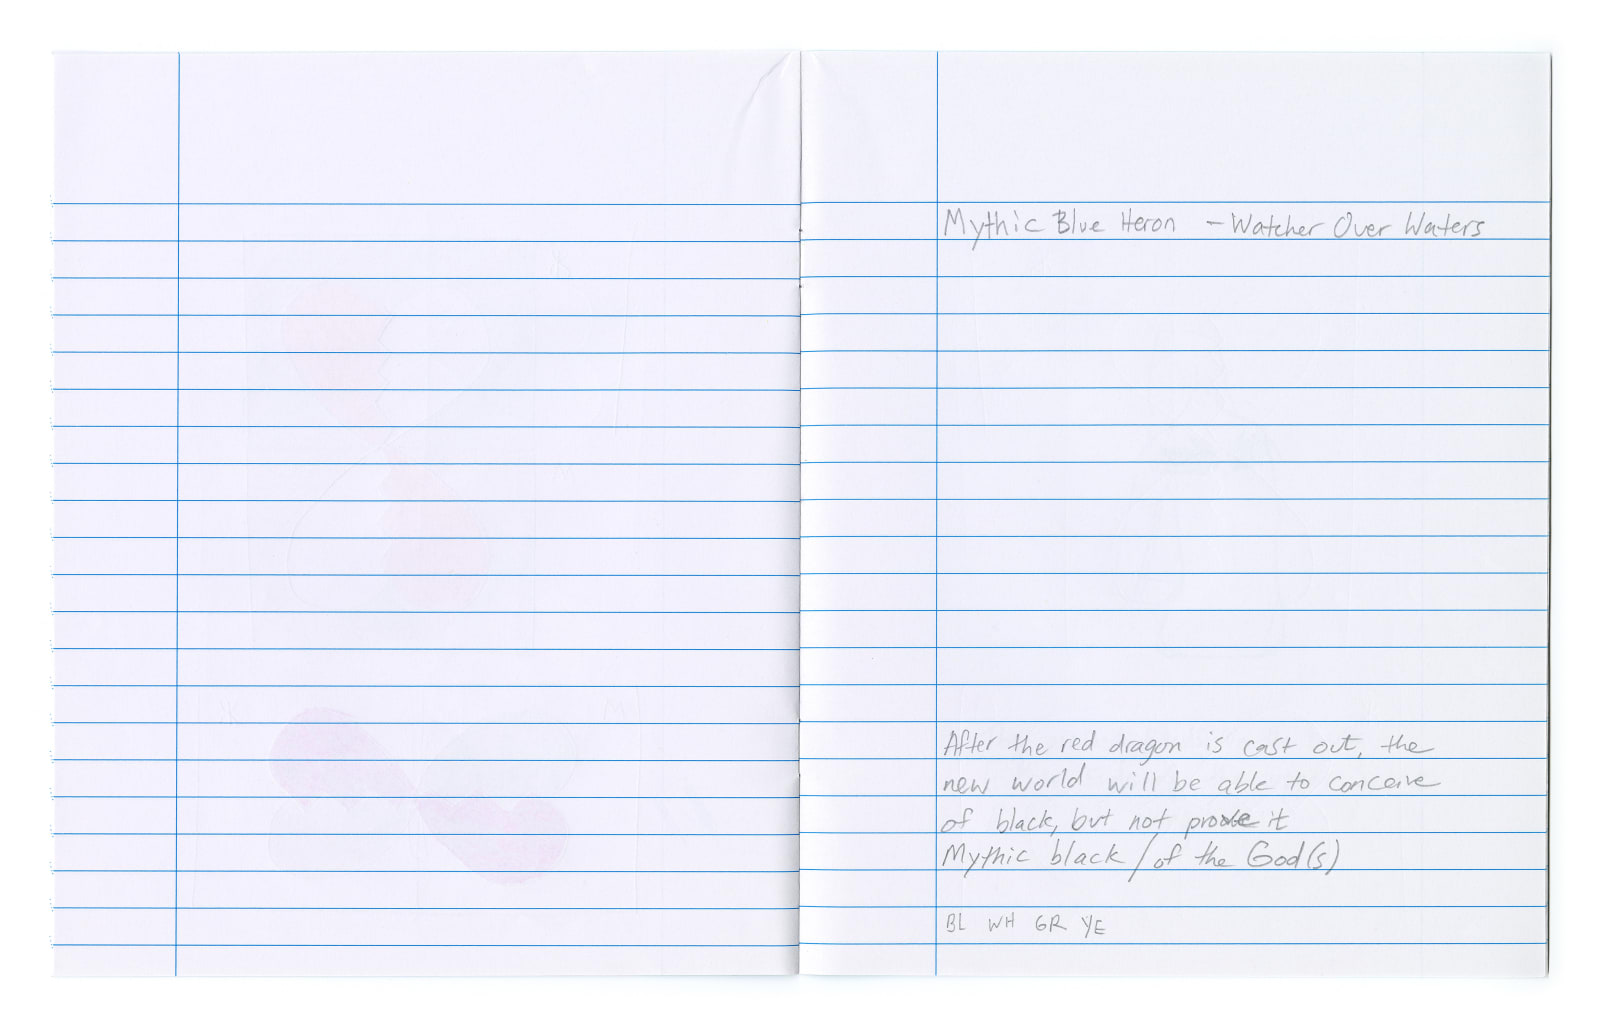 Mythic Blue Heron – Watcher Over Waters
After the red dragon is cast out, the
new world will be able to conceive
of black, but not prove it
Mythic black / of the God(s)
BL WH GR YE